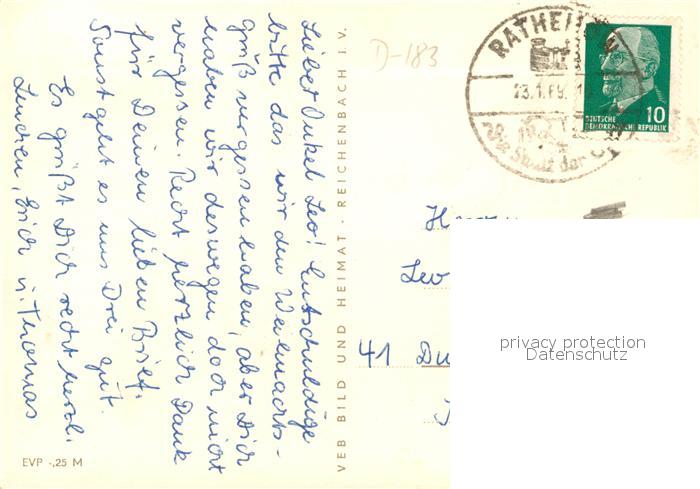 Lieber Onkel Leo! Entschuldige
bitte das wir den Weihnachts-
gruß vergessen haben, aber Dich
haben wir deswegen doch nicht
vergessen. Recht herzlich Dank
für Deinen lieben Brief.
Sonst geht es uns Drei gut.
Es grüßt Dich recht herzl.
Lenchen, Erich u. Thomas
EVP -,25 M
VEB BILD UND HEIMAT · REICHENBACH I. V.
D-183
RATHENOW
23.1.69
Stadt der
10
DEUTSCHE
DEMOKRATISCHE REPUBLIK
Herrn
Leo
41 Du
privacy protection
Datenschutz